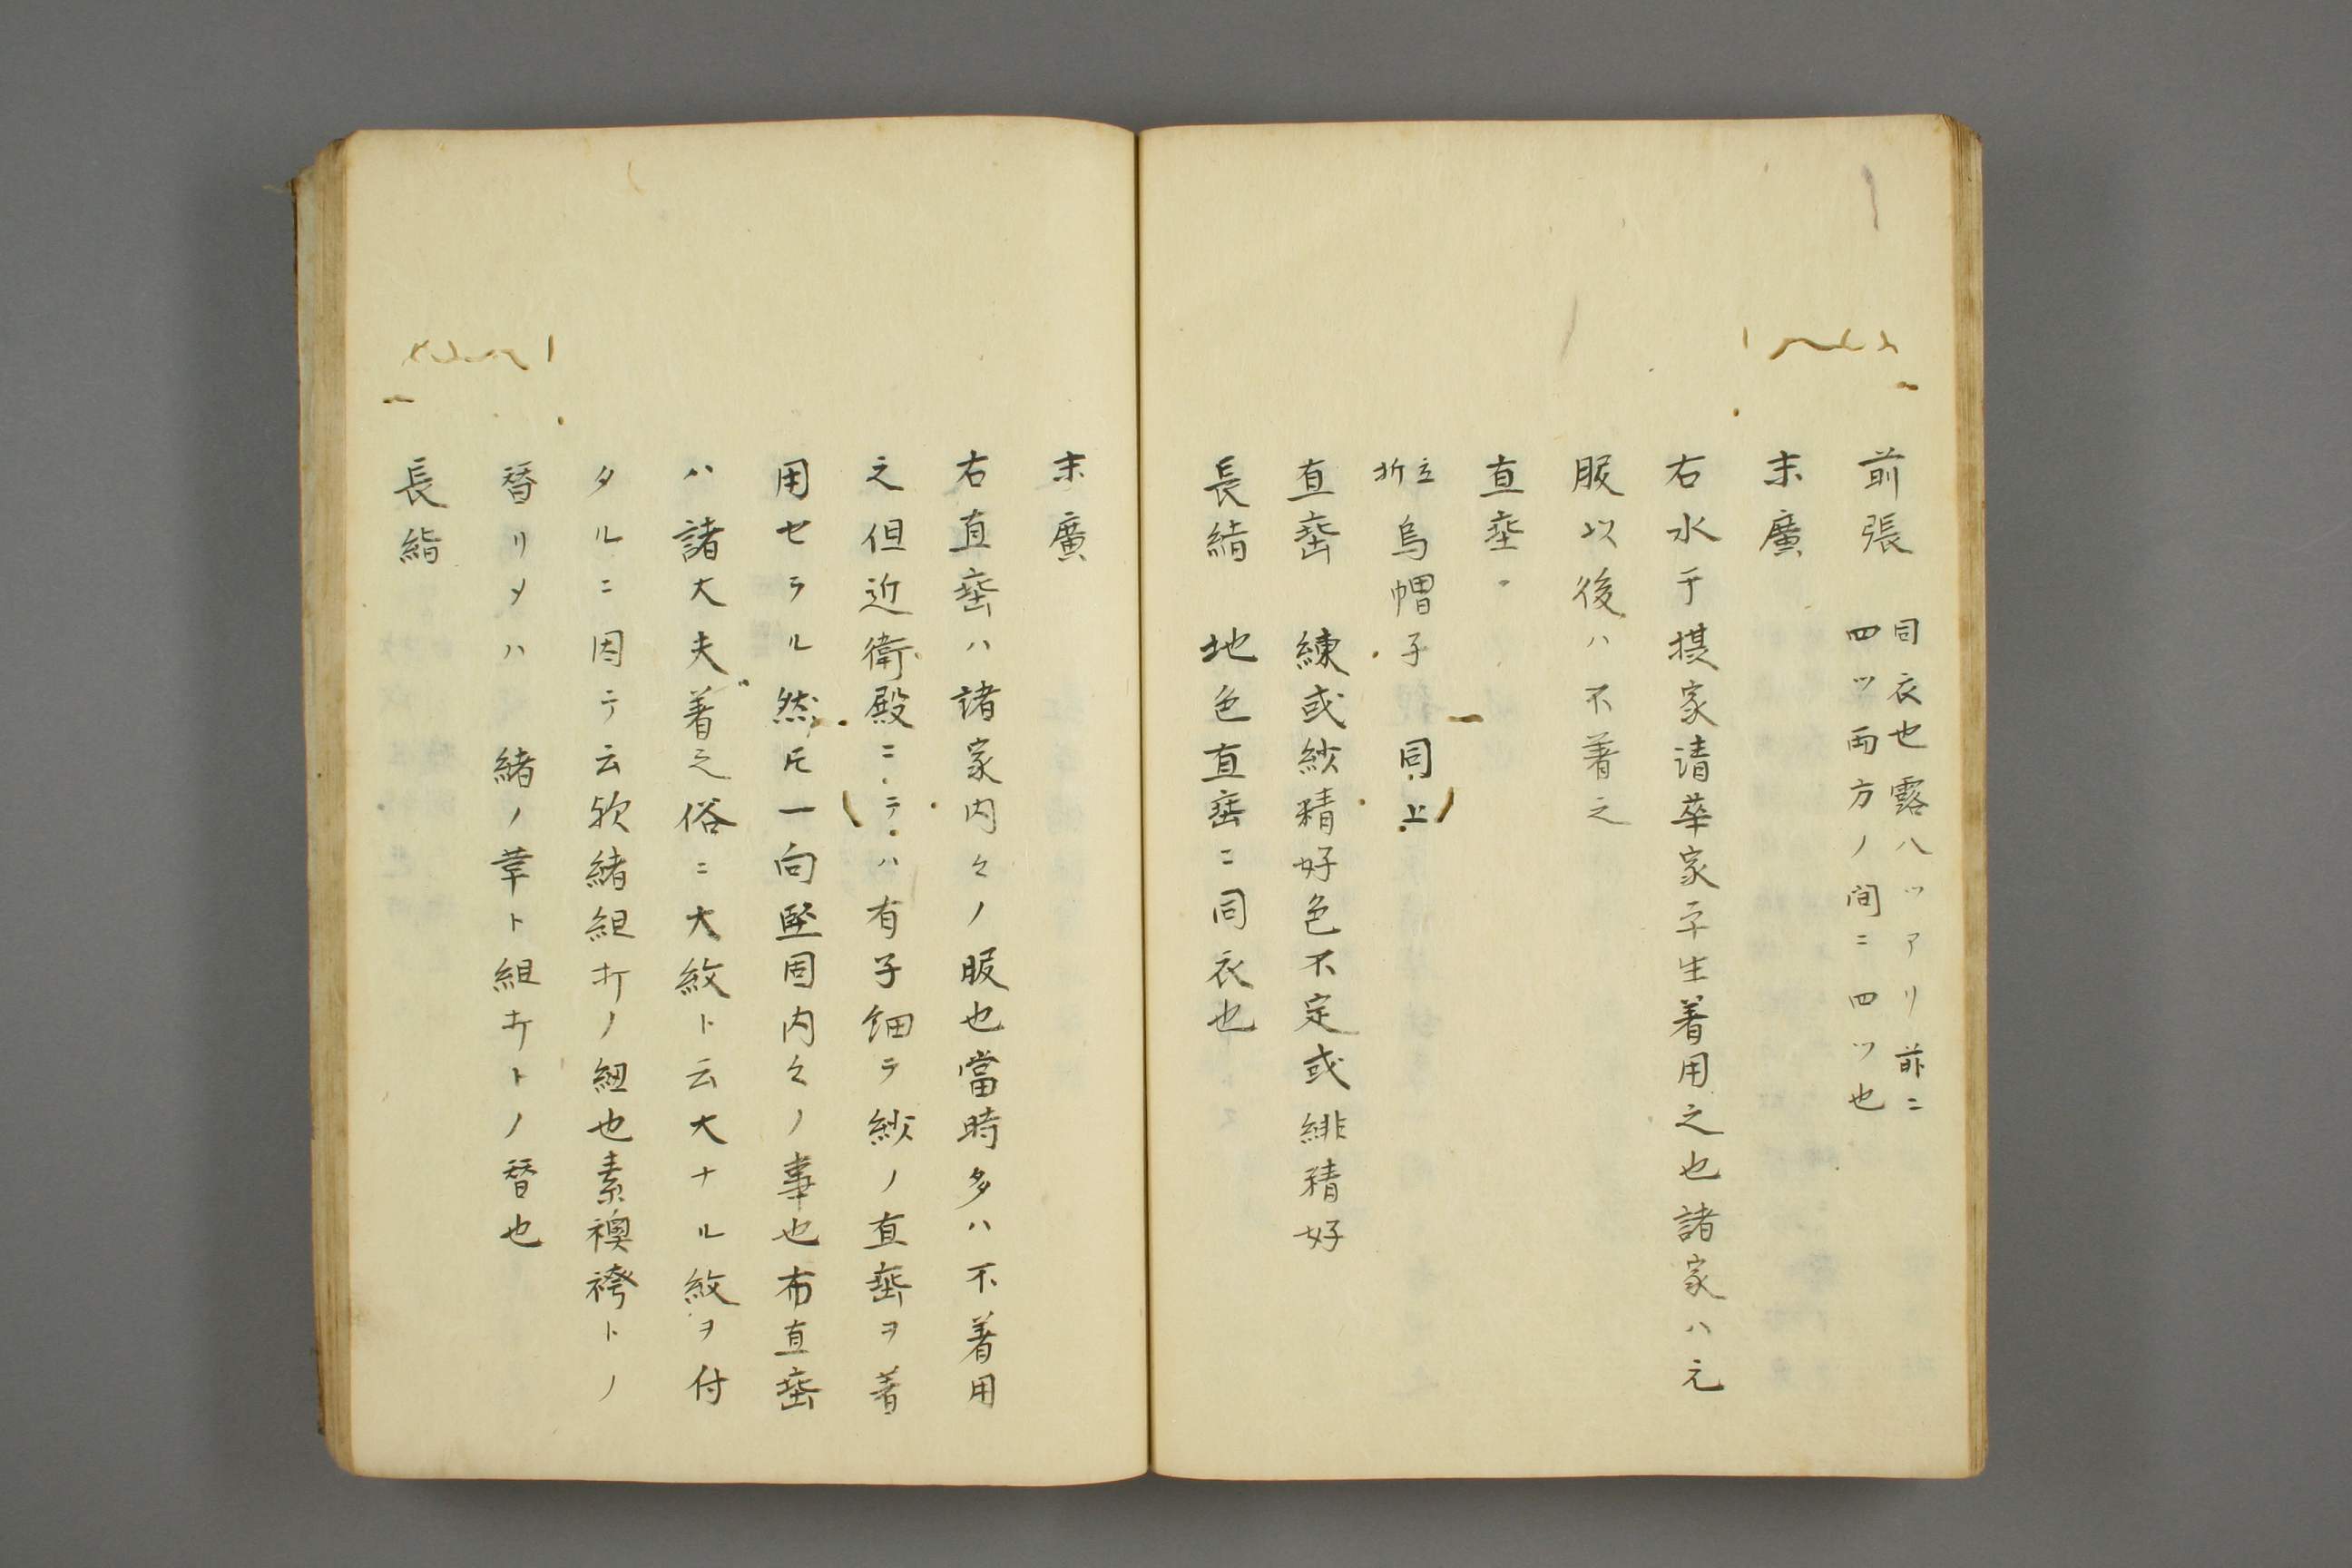 前張 同衣也露八ツアリ前ニ
四ツ両方ノ間ニ四ツ也
末廣
右水干摂家清華家平生着用之也諸家ハ元
服以後ハ不着之
直垂
立折 烏帽子 同上
直垂 練或紗精好色不定或緋精好
長絹 地色直垂ニ同衣也
末廣
右直垂ハ諸家内々ノ服也當時多ハ不着用
之但近衛殿ニテハ有子細テ紗ノ直垂ヲ着
用セラル然圧一向堅固内々ノ事也布直垂
ハ諸大夫着之俗ニ大紋ト云大ナル紋ヲ付
タルニ因テ云欤緒組打ノ紐也素襖袴トノ
替リメハ 緒ノ革ト組打トノ替也
長絹